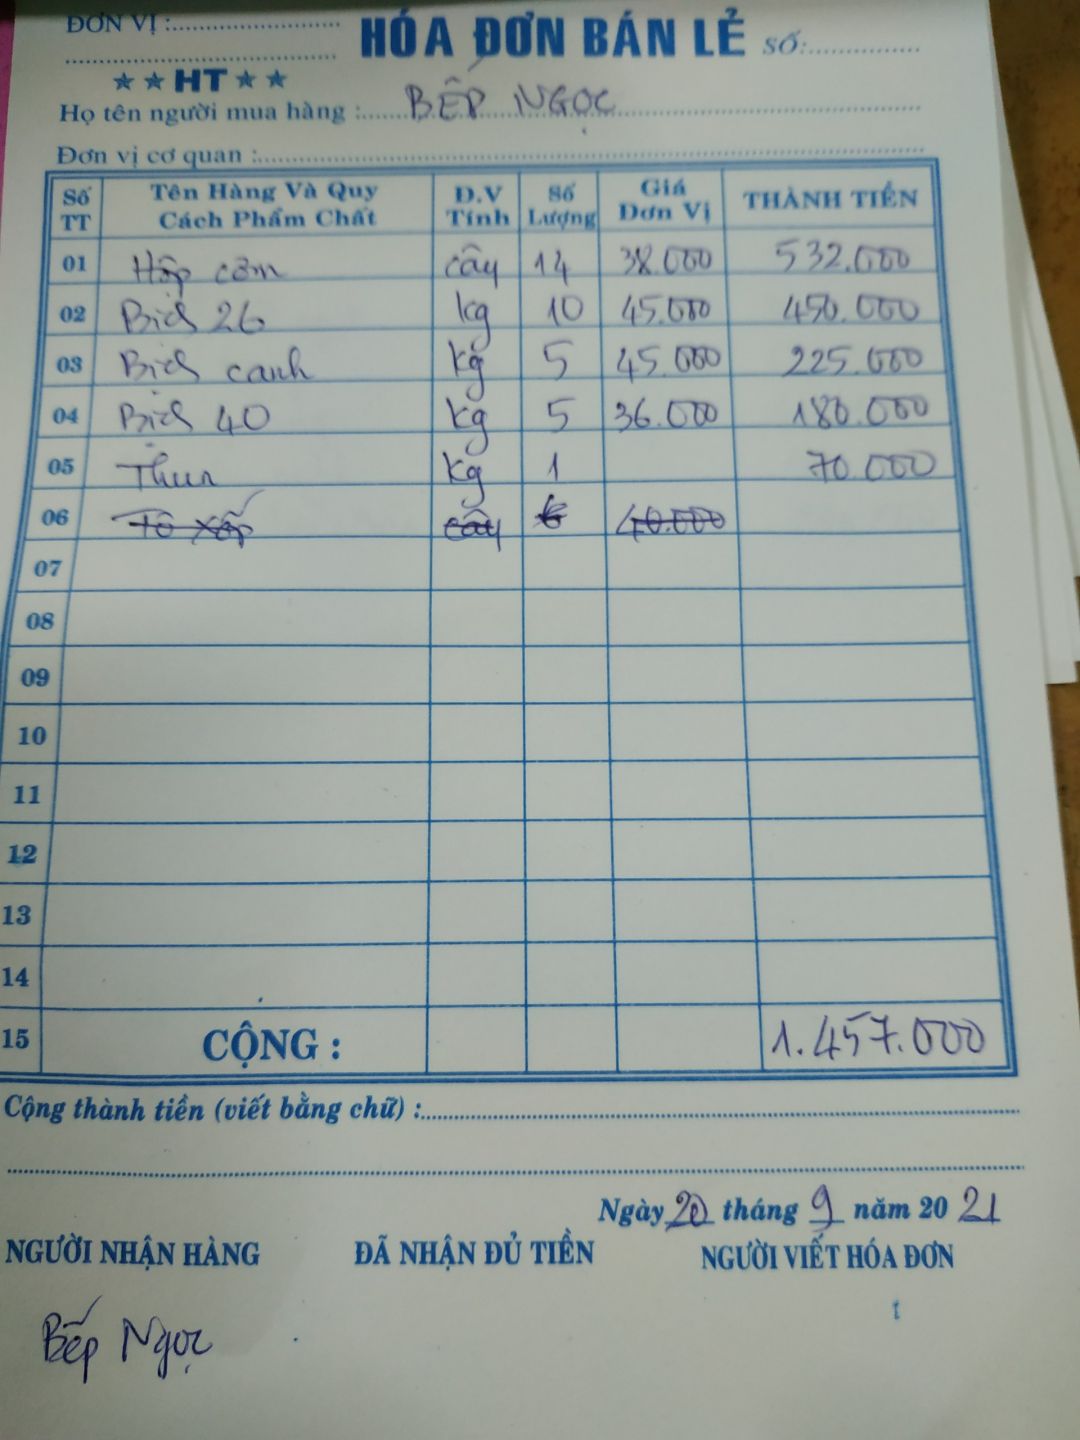 ĐƠN VỊ :
HÓA ĐƠN BÁN LẺ SỐ:
★ ★ HT ★ ★
Họ tên người mua hàng : BẾP NGỌC
Đơn vị cơ quan :
Số TT Tên Hàng Và Quy Cách Phẩm Chất Đ.V Tính Số Lượng Giá Đơn Vị THÀNH TIỀN
01 Hộp cơm cây 14 38.000 532.000
02 Bịch 26 kg 10 45.000 450.000
03 Bịch canh kg 5 45.000 225.000
04 Bịch 40 kg 5 36.000 180.000
05 Thun kg 1 70.000
06 Tô xốp cây 40.000
07
08
09
10
11
12
13
14
15 CỘNG : 1.457.000
Cộng thành tiền (viết bằng chữ) :
Ngày 20 tháng 9 năm 20 21
NGƯỜI NHẬN HÀNG ĐÃ NHẬN ĐỦ TIỀN NGƯỜI VIẾT HÓA ĐƠN
Bếp Ngọc